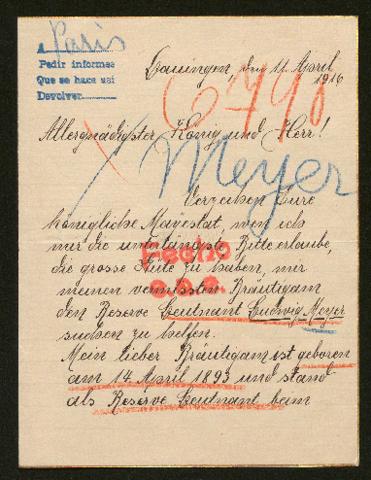 a Paris
Pedir informes
Que se hace asi
Devolver
Lauingen, den 11. April
1916
6790
Allergnädigster König und Herr!
Meyer
Verzeihen Eure
königliche Majestät, wen ich
mir die untertängste Bitte erlaube,
die grosse Güte zu haben, mir
meinen vermissten Bräutigam
Fecho
den Reserve Leutnant Ludwig Meyer
suchen zu helfen.
Mein lieber Bräutigam ist geboren
am 14. April 1893 und stand
als Reserve Leutnant beim